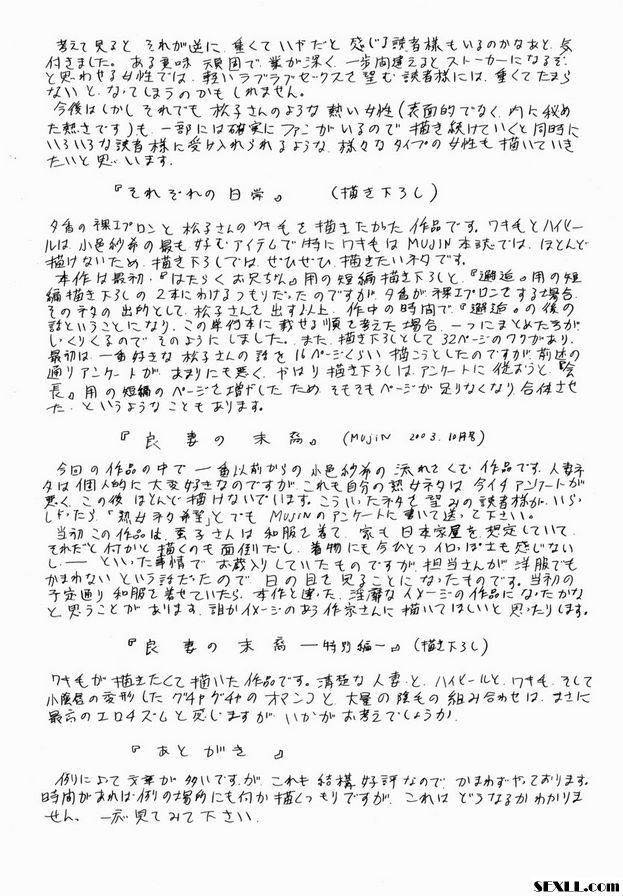 考えて見ると、それが逆に、重くていやだと感じる読者様もいるのかなあと、気
付きました。ある意味 頑固で、業が深く、一歩間違えるとストーカーになるぞ
と思わせる女性では、軽いラブラブセックスを望む読者様には、重くてたまら
ないと、なってしまうのかもしれません。
今後はしかし それでも 松子さんのような熱い女性(表面的でなく、内に秘め
た熱さです)も、一部には確実にファンがいるので 描き続けていくと同時に
いろいろな読者様に受け入れられるような、様々なタイプの女性も描いていき
たいと思います。
『それぞれの日常』 (描き下ろし)
夕香の裸エプロンと 松子さんのワキ毛を描きたかった 作品です。ワキ毛とハイヒー
ルは、小邑紗希の最も好むアイテムで特にワキ毛は MUJIN本誌では、ほとんど
描けないため、描き下ろしでは、ぜひぜひ、描きたいネタです。
本作は最初、『はたらくお兄ちゃん』用の短編描き下ろしと、『邂逅』用の短
編描き下ろしの 2本にわけるつもりだったのですが、夕香が裸エプロンをする場合、
そのネタの出所として、松子さんを出す以上、作中の時間で『邂逅』の後の
話ということになり、この単行本に載せる順を考えた場合、一つにまとめた方が
しっくりくるので そのようにしました。また、描き下ろしとして 32ページのワクがあり、
最初は、一番好きな 松子さんの話を 16ページくらい 描こうとしたのですが、前述の
通りアンケートが、あまりにも悪く、やはり描き下ろしは、アンケートに従おうと、『会
長』用の短編のページを増やしたため、そもそもページが足りなくなり、合体させ
た、というようなこともあります。
『良妻の末裔』 (MUJIN 2003.10月号)
今回の作品の中で 一番以前からの 小邑紗希の 流れをくむ 作品です。人妻ネ
タは個人的に 大変好きなのですが、これも自分の熟女ネタは 今イチ アンケートが
悪く、この後 ほとんど描けないでいます。こういったネタを 望みの読者様が、いらっ
しゃったら「熟女ネタ希望」とでも MUJINのアンケートに書いて送って下さい。
当初 この作品は、 子さんは 和服を着て、家も 日本家屋を 想定していて、
それだと何かと描くのも面倒だし、着物にも今ひとつ イロっぽさも感じない
し── といった事情で お蔵入りしていたものですが、担当さんが 洋服でも
かまわない という話だったので、日の目を見ることになったものです。当初の
予定通り 和服を着せていたら、本作と違った、淫靡なイメージの作品になったかな
と思うことがあります。誰かイメージのあう作家さんに描いてほしいと思ったりします。
『良妻の末裔 ―特別編―』 (描き下ろし)
ワキ毛が描きたくて描いた作品です。清楚な人妻と、ハイヒールと、ワキ毛、そして
小陰唇の変形した グチャグチャの オマンコと、大量の陰毛の組み合わせは、まさに
最高のエロチズムと感じますが、いかがお考えでしょうか。
『あとがき』
例によって文章が多いですが、これも結構好評なので、かまわずやっております。
時間があれば、例の場所にも何か描くつもりですが、これはどうなるかわかりま
せん。一応見てみて下さい。
SEXLL.com